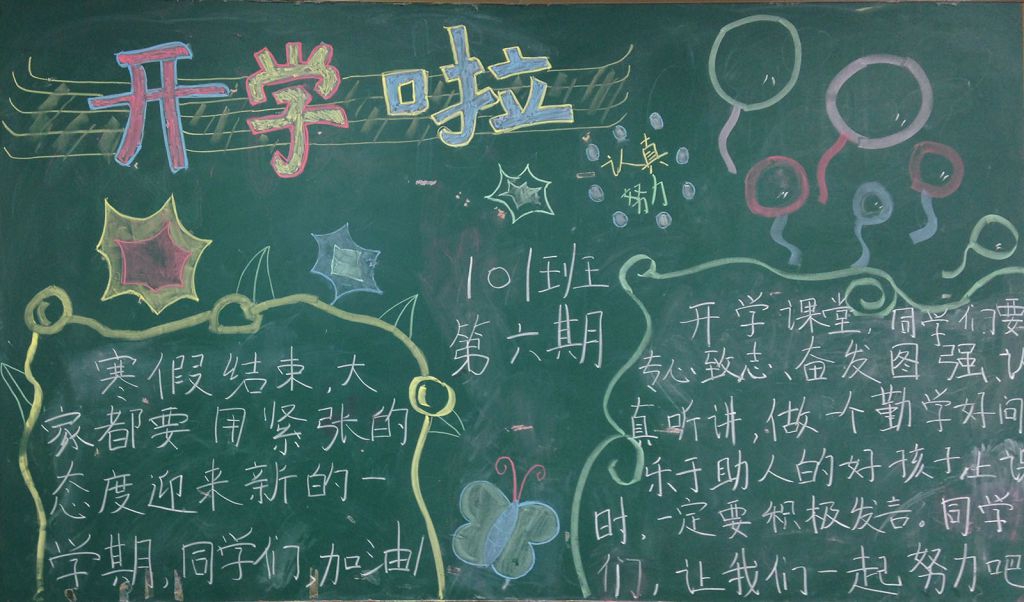 开学啦
认真
努力
101班
第六期
寒假结束,大
家都要用紧张的
态度迎来新的一
学期,同学们,加油!
开学课堂,同学们要
专心致志、奋发图强、认
真听讲,做一个勤学好问
乐于助人的好孩子上课
时,一定要积极发言。同学
们,让我们一起努力吧